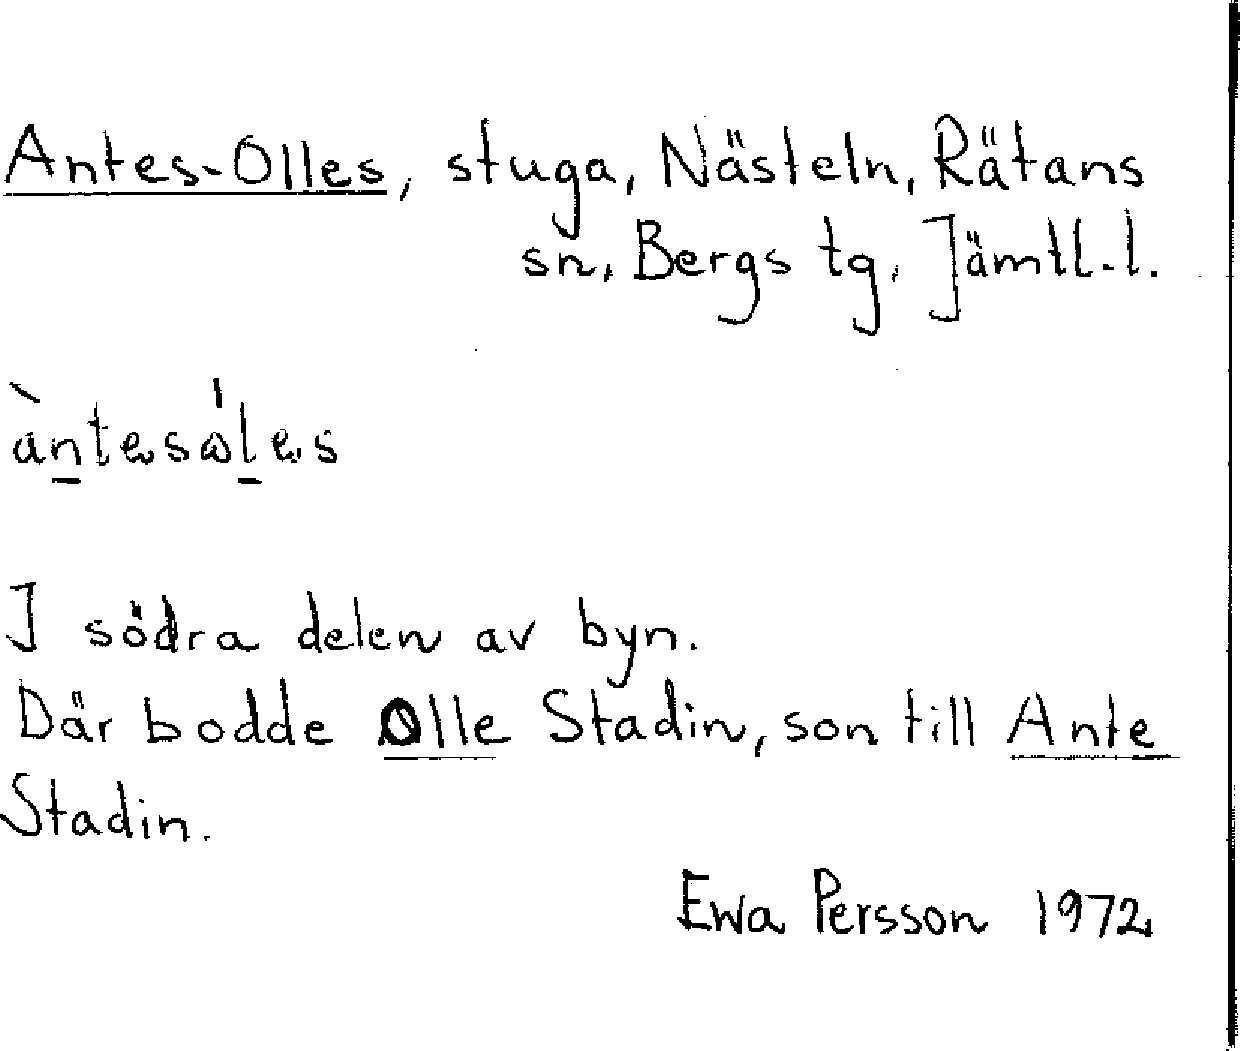 Antes-Olles, stuga, Nästeln, Rätans
sn, Bergs tg, Jämtl.l.
àntesω̍les
I södra delen av byn.
Där bodde Olle Stadin, son till Ante
Stadin.
Ewa Persson 1972